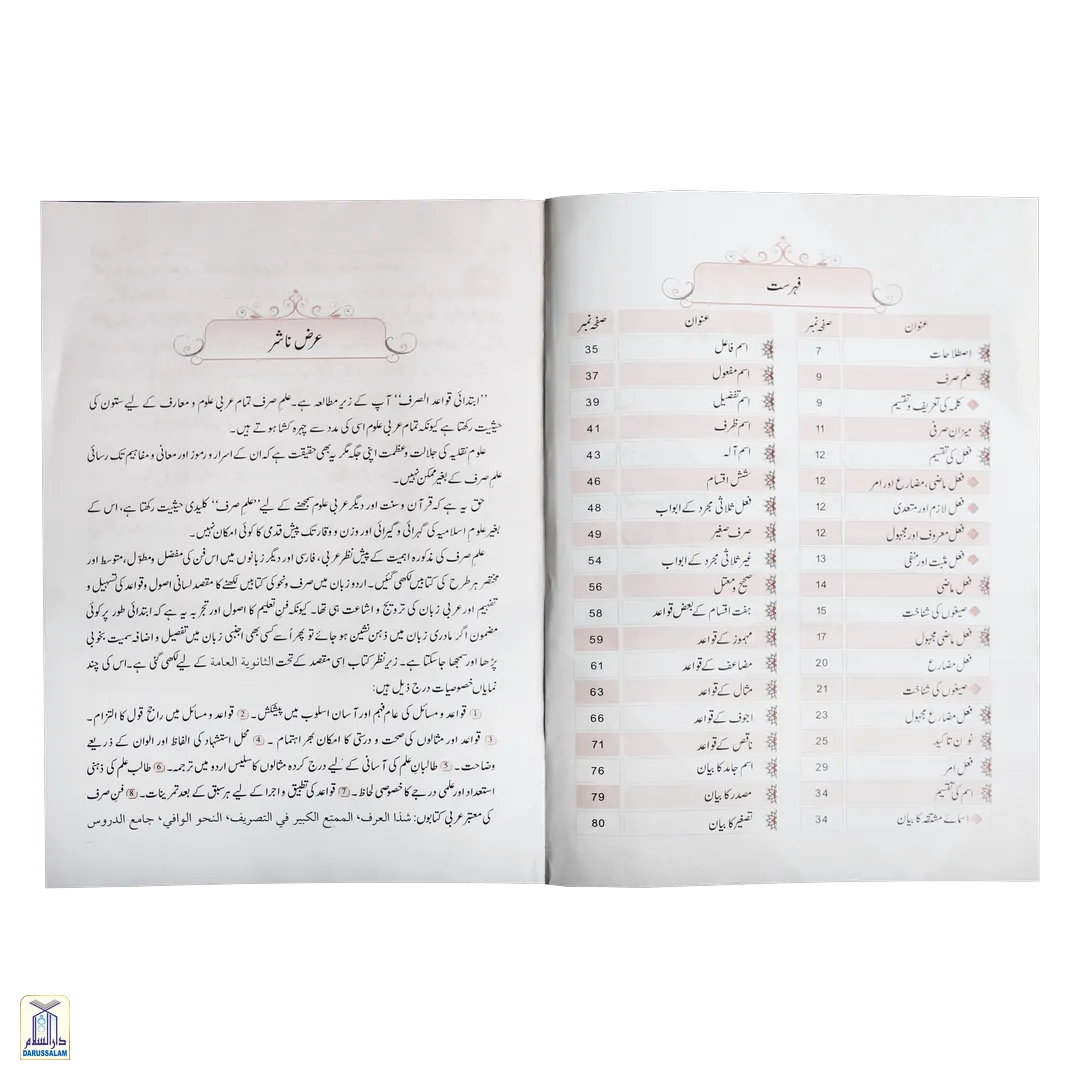 فہرست
عنوان صفحہ نمبر
اصطلاحات 7
علم صرف 9
کلمہ کی تعریف و تقسیم 9
میزان صرفی 11
فعل کی تقسیم 12
فعل ماضی، مضارع اور امر 12
فعل لازم اور متعدی 12
فعل معروف اور مجہول 12
فعل مثبت اور منفی 13
فعل ماضی 14
صیغوں کی شناخت 15
فعل ماضی مجہول 17
فعل مضارع 20
صیغوں کی شناخت 21
فعل مضارع مجہول 23
نون تاکید 25
فعل امر 29
اسم کی تقسیم 34
اسمائے مشتقہ کا بیان 34
عنوان صفحہ نمبر
اسم فاعل 35
اسم مفعول 37
اسم تفضیل 39
اسم ظرف 41
اسم آلہ 43
شش اقسام 46
فعل ثلاثی مجرد کے ابواب 48
صرف صغیر 49
غیر ثلاثی مجرد کے ابواب 54
صحیح و معتل 56
ہفت اقسام کے بعض قواعد 58
مہموز کے قواعد 59
مضاعف کے قواعد 61
مثال کے قواعد 63
اجوف کے قواعد 66
ناقص کے قواعد 71
اسم جامد کا بیان 76
مصدر کا بیان 79
تصغیر کا بیان 80
عرض ناشر
’’ابتدائی قواعد الصرف‘‘ آپ کے زیرِ مطالعہ ہے۔ علمِ صرف تمام عربی علوم و معارف کے لیے ستون کی
حیثیت رکھتا ہے کیونکہ تمام عربی علوم اسی کی مدد سے چہرہ کشا ہوتے ہیں۔
علومِ نقلیہ کی جلالت و عظمت اپنی جگہ مگر یہ بھی حقیقت ہے کہ ان کے اسرار و رموز اور معانی و مفاہیم تک رسائی
علمِ صرف کے بغیر ممکن نہیں۔
حق یہ ہے کہ قرآن و سنت اور دیگر عربی علوم سمجھنے کے لیے ’’علمِ صرف‘‘ کلیدی حیثیت رکھتا ہے، اس کے
بغیر علومِ اسلامیہ کی گہرائی و گیرائی اور وزن و وقار تک پیش قدمی کا کوئی امکان نہیں۔
علمِ صرف کی مذکورہ اہمیت کے پیش نظر عربی، فارسی اور دیگر زبانوں میں اس فن کی مفصل و مطوّل، متوسط اور
مختصر ہر طرح کی کتابیں لکھی گئیں۔ اردو زبان میں صرف و نحو کی کتابیں لکھنے کا مقصد لسانی اصول و قواعد کی تسہیل و
تفہیم اور عربی زبان کی ترویج و اشاعت ہی تھا۔ کیونکہ فنِ تعلیم کا اصول اور تجربہ یہ ہے کہ ابتدائی طور پر کوئی
مضمون اگر مادری زبان میں ذہن نشین ہو جائے تو پھر اُسے کسی بھی اجنبی زبان میں تفصیل و اضافہ سمیت بخوبی
پڑھا اور سمجھا جاسکتا ہے۔ زیرِ نظر کتاب اسی مقصد کے تحت الثانوية العامة کے لیے لکھی گئی ہے۔ اس کی چند
نمایاں خصوصیات درج ذیل ہیں:
① قواعد و مسائل کی عام فہم اور آسان اسلوب میں پیشکش۔ ② قواعد و مسائل میں راجح قول کا التزام۔
③ قواعد اور مثالوں کی صحت و درستی کا امکان بھر اہتمام ۔ ④ محل استشہاد کی الفاظ اور الوان کے ذریعے
وضاحت۔ ⑤ طالبانِ علم کی آسانی کے لیے درج کردہ مثالوں کا سلیس اردو میں ترجمہ۔ ⑥ طالب علم کی ذہنی
استعداد اور علمی درجے کا خصوصی لحاظ۔ ⑦ قواعد کی تطبیق و اجرا کے لیے ہر سبق کے بعد تمرینات۔ ⑧ فنِ صرف
کی معتبر عربی کتابوں: شذا العرف، الممتع الكبير في التصريف، النحو الوافي، جامع الدروس
دار السلام
DARUSSALAM